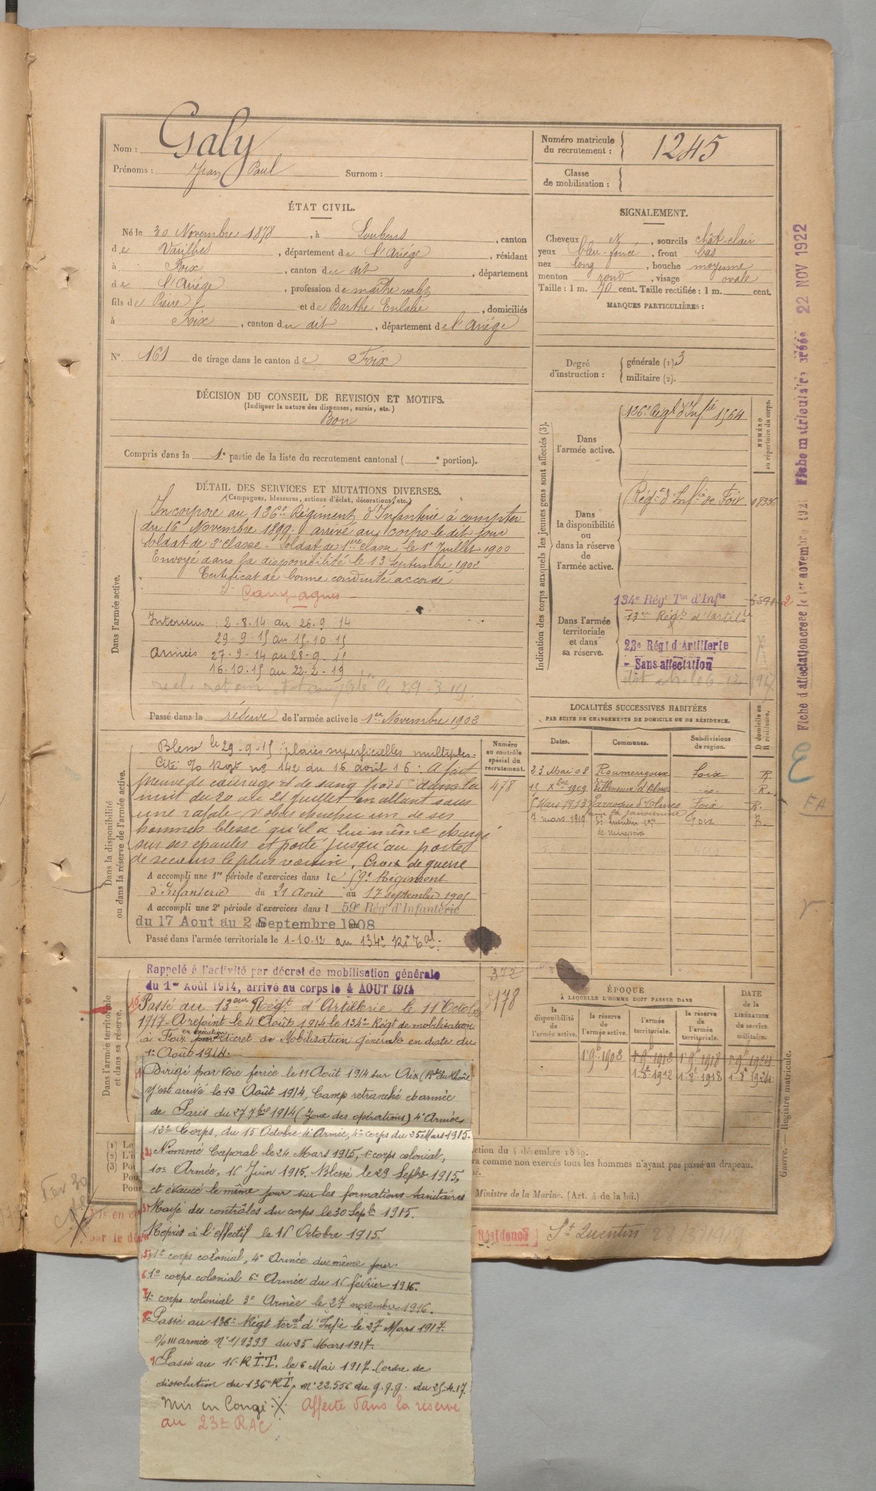 Nom : Galy
Prénoms : Jean Paul Surnom :
Numéro matricule du recrutement : 1245
Classe de mobilisation :
ÉTAT CIVIL.
Né le 30 Novembre 1878, à Loubens, canton
de Varilhes, département de l'Ariège, résidant
à Foix, canton du dit, département
de l'Ariège, profession de maître valet
fils de Pierre et de Barthe Eulalie, domiciliés
à Foix, canton du dit, département de l'Ariège
N° 161 de tirage dans le canton de Foix
SIGNALEMENT.
Cheveux d, sourcils chât-clair
yeux bleu-foncé, front bas
nez long, bouche moyenne
menton rond, visage ovale
Taille : 1 m. 70 cent. Taille rectifiée : 1 m. cent.
MARQUES PARTICULIÈRES :
Degré d'instruction : générale (1) 3
militaire (2).
DÉCISION DU CONSEIL DE REVISION ET MOTIFS.
(Indiquer la nature des dispenses, sursis, etc.)
Bon
Compris dans la 1e partie de la liste du recrutement cantonal ( e portion).
DÉTAIL DES SERVICES ET MUTATIONS DIVERSES.
(Campagnes, blessures, actions d'éclat, décorations, etc.)
Dans l'armée active.
Incorporé au 126e Régiment d'Infanterie à compter
du 16 Novembre 1899 arrivé au corps le dit jour
Soldat de 2e classe. Soldat de 1ère classe le 1er Juillet 1900
Envoyé dans la disponibilité le 13 Septembre 1902
Certificat de bonne conduite accordé
Campagnes
Intérieur : 2-8.14 au 26.9.14
29-9-15 au 15.10.15
Armées 27-9-14 au 28-9-15
16.10.15 au 22-2-19
Passé dans la réserve de l'armée active le 1er Novembre 1903
Dans la disponibilité ou dans la réserve de l'armée active.
Blessé le 29-9-15 : plaies superficielles multiples.
Cité O/ Regt no 142 du 16 août 16 : A fait
preuve de courage et de sang froid dans la
nuit du 20 au 21 juillet en allant sous
une rafale d'obus chercher un de ses
hommes blessé qu'il a lui même chargé
sur ses épaules et porté jusqu'au poste
de secours le plus voisin. Croix de guerre
A accompli une 1re période d'exercices dans le 59e Régiment
d'Infanterie du 21 Août au 17 Septembre 1905
A accompli une 2e période d'exercices dans le 59e Rég. d'Infanterie
du 17 Aout au 2 Septembre 1908
Passé dans l'armée territoriale le 1-10.12 au 134e Rt Tal.
Numéro au contrôle spécial du recrutement.
478
Indication des corps auxquels les jeunes gens sont affectés (3).
NUMÉRO au répertoire du corps.
Dans l'armée active.
126e Régt d'Infie 1364
Dans la disponibilité ou dans la réserve de l'armée active.
Régt d'Infie de Foix
Dans l'armée territoriale et dans sa réserve.
134e Rég Ter d'Infie
13e Régt d'Artillie
23e Régt d'Artillerie
- Sans affectation
LOCALITÉS SUCCESSIVES HABITÉES
PAR SUITE DE CHANGEMENTS DE DOMICILE OU DE RÉSIDENCE.
Dates. Communes. Subdivisions de région. D domicile ou R résidence.
23 Mai 08 Roumengoux Foix R
15 Xbre 1909 Villeneuve d'Olmes d° R.
7 Mars 1913 Lavroque d'Olmes Foix R.
7 mars 1919 St Quentin Foix R
de Mirepoix
ÉPOQUE
À LAQUELLE L'HOMME DOIT PASSER DANS
la disponibilité de l'armée active. la réserve de l'armée active. l'armée territoriale. la réserve de l'armée territoriale.
DATE DE LA LIBÉRATION du service militaire.
1er 9bre 1903 1er 9bre 1913 1er 9bre 1918 1er 9bre 1924
1-8bre 1912 1-8bre 1918 1-8bre 1924
Dans l'armée territoriale et dans sa réserve.
Rappelé à l'activité par décret de mobilisation générale
du 1er Août 1914, arrivé au corps le 4 AOUT 1914
372
178
Passé au 13eme Régt. d'Artillerie le 11 Octobre
1917 A rejoint le 4 Août 1914 le 134e Régt de mobilisation
à Foix décret de Mobilisation Générale en date du
1er Août 1914.
Dirigé par voie ferrée le 11 Août 1914 sur Aix (Bes du Rhône
y'est arrivé le 12 Août 1914, Camp retranché et armée
de Paris du 27 7bre 1914 (Zone des opérations) 4e Armée
12e Corps, du 15 Octobre 4e Armée, 2e corps du 25 Mars 1915.
Nommé Caporal le 24 Mars 1915, 1er corps colonial,
10e Armée, 16 Juin 1915. Blessé le 29 Septbre 1915
et évacué le même jour sur les formations sanitaires
Rayé des contrôles du corps le 30 Septbre 1915.
Repris à l'effectif le 16 Octobre 1915.
1er corps colonial, 4e Armée du même jour
1er corps colonial 6e Armée du 16 février 1916.
1er corps colonial 3e Armée le 27 novembre 1916.
Passé au 136e Régt terral d'Infie le 27 Mars 1917.
O/ III armée N° 1/9399 du 25 Mars 1917.
Passé au 16 R.I.T. le 6 Mai 1917 (ordre de
dissolution du 136e R.I. n° 22.556 du g.q.g. du 25.4.17
Mis en Congé Affecté dans la réserve
au 23e RAC
du 4 décembre 1889.
comme non exercés tous les hommes n'ayant pas passé au drapeau.
Ministre de la Marine. (Art. 4 de la loi.)
Résidence St Quentin
Guerre. — Registre matricule.
22 NOV 1922
FA